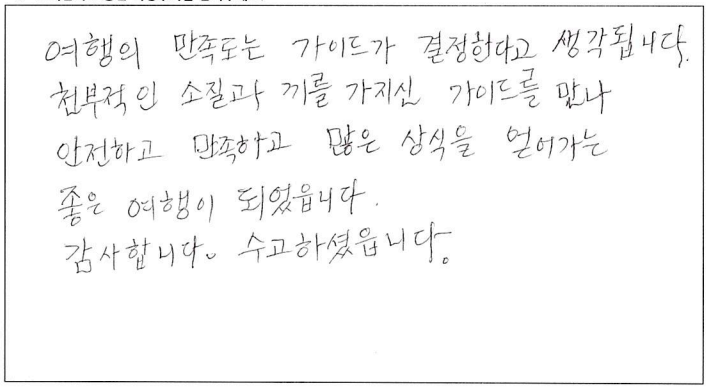 여행의 만족도는 가이드가 결정한다고 생각됩니다.
천부적인 소질과 끼를 가지신 가이드를 만나
안전하고 만족하고 많은 상식을 얻어가는
좋은 여행이 되었읍니다.
감사합니다. 수고하셨읍니다.